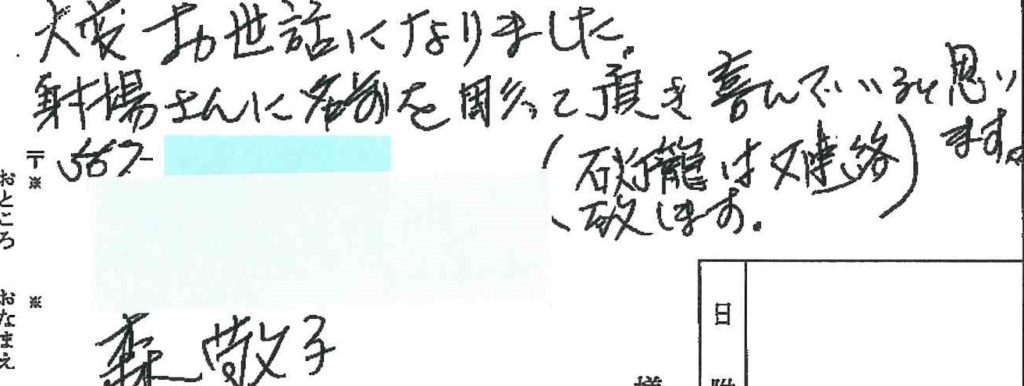 大変お世話になりました。
射場さんに名前を周って頂き喜んでいると思い
ます。
(灯籠は又連絡
致します。)
〒567-
※
おところ
※
おなまえ
森 敬子
日附
様